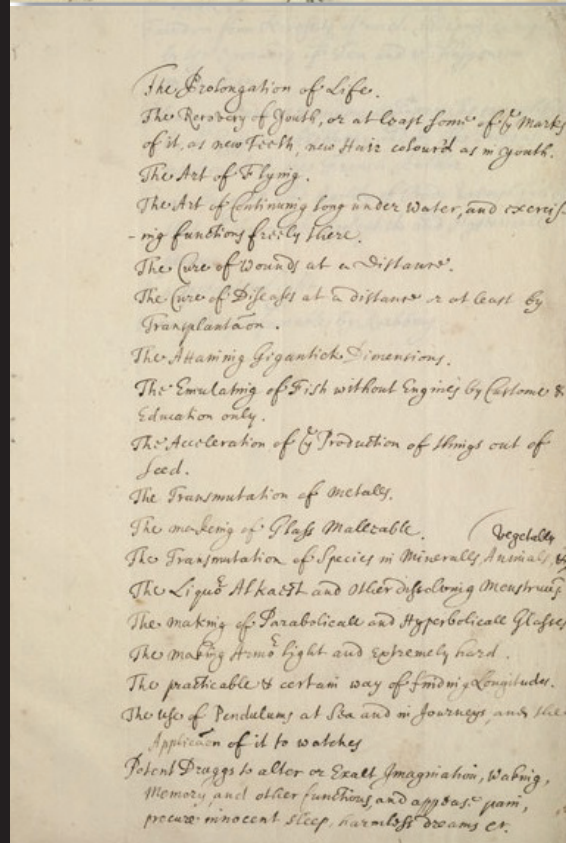 The Prolongation of Life.
The Recovery of Youth, or at least some of ye Marks
of it, as new Teeth, new Hair colour'd as in youth.
The Art of Flying.
The Art of Continuing long under water, and exercis-
-ing functions freely there.
The Cure of Wounds at a Distance.
The Cure of Diseases at a distance or at least by
Transplantaōn.
The Attaining Gigantick Dimensions.
The Emulating of Fish without Engines by Custome &
Education only.
The Acceleration of ye Production of things out of
Seed.
The Transmutation of Metalls.
The makeing of Glass Malleable.
Vegetalls
The Transmutation of Species in Mineralls, Animals, &
The Liquor Alkaest and Other dissolving Menstruums
The making of Parabolicall and Hyperbolicall Glasses
The making Armor light and extremely hard.
The practicable & certain way of finding Longitudes.
The use of Pendulums at Sea and in Journeys, and the
Applicaōn of it to watches
Potent Druggs to alter or Exalt Imagination, Waking,
Memory, and other functions, and appease pain,
procure innocent sleep, harmless dreams etc.